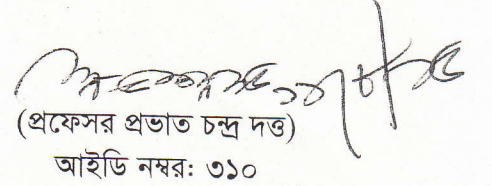 (প্রফেসর প্রভাত চন্দ্র দত্ত)
আইডি নম্বর: ৩১০